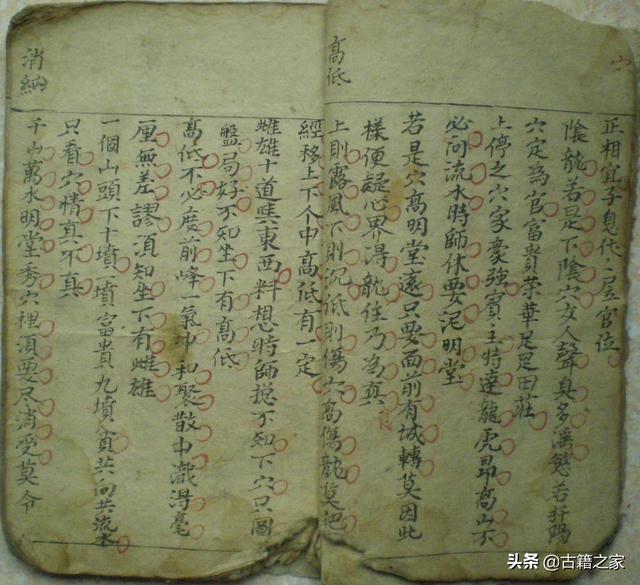 穴
正相宜子息代々居官位
陰龍若是下陰穴女人聲臭多淫慾若扦陽
穴定為官富貴荣華足足田莊
上停之穴家豪強賓主特達龍虎昂高山不
必問流水時師休要泥明堂
若是穴高明堂遠只要面前有城轉莫因此
樣便疑心界得龍住乃為真
高低
上則露風下則沉低則傷穴高傷龍莫把
經移上下个中高低有一定
雌雄十道與東西料想時師捴不知下穴只圖
盤局好不知坐下有高低
高低不必度前峰一氣中和聚散中識得毫
厘無差謬須知坐下有雌雄
一個山頭下十墳一墳富貴九墳貧共向共流水
只看穴情真不真
消納
千山萬水明堂秀穴裡須要尽消受莫令
头条@古籍之家